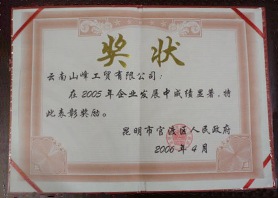 奖状
云南山峰工贸有限公司：
在2005年企业发展中成绩显著，特
此表彰奖励。
昆明市官渡区人民政府
2006年4月